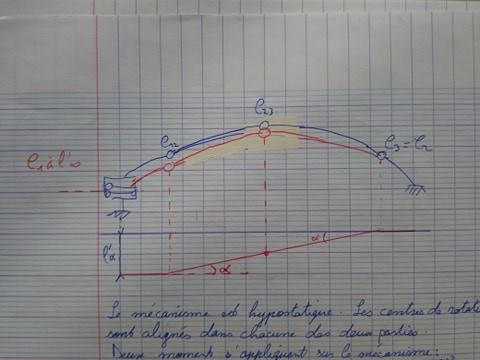 C₂₃
C₁₂
C₃ = C₂
C₁ à l'∞
l'α
α
α
Le mécanisme est hypostatique. Les centres de rotat
sont alignés dans chacune des deux parties.
Deux moments s'appliquent sur le mécanisme :